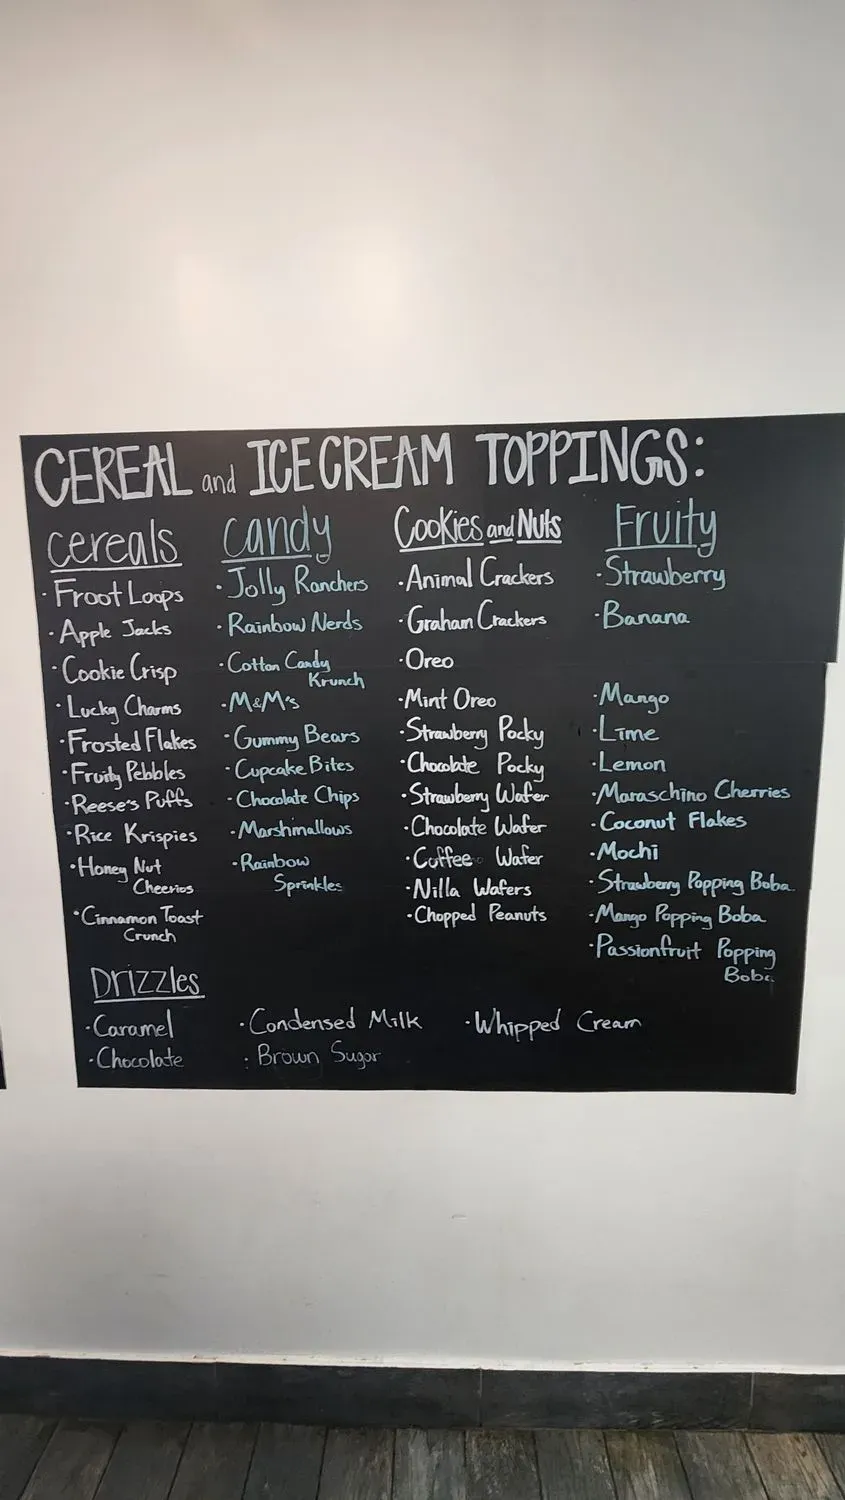 CEREAL and ICE CREAM TOPPINGS:
cereals
· Froot Loops
· Apple Jacks
· Cookie Crisp
· Lucky Charms
· Frosted Flakes
· Fruity Pebbles
· Reese's Puffs
· Rice Krispies
· Honey Nut
Cheerios
· Cinnamon Toast
Crunch
candy
· Jolly Ranchers
· Rainbow Nerds
· Cotton Candy
Krunch
· M&M's
· Gummy Bears
· Cupcake Bites
· Chocolate Chips
· Marshmallows
· Rainbow
Sprinkles
Cookies and Nuts
· Animal Crackers
· Graham Crackers
· Oreo
· Mint Oreo
· Strawberry Pocky
· Chocolate Pocky
· Strawberry Wafer
· Chocolate Wafer
· Coffee Wafer
· Nilla Wafers
· Chopped Peanuts
Fruity
· Strawberry
· Banana
· Mango
· Lime
· Lemon
· Maraschino Cherries
· Coconut Flakes
· Mochi
· Strawberry Popping Boba
· Mango Popping Boba
· Passionfruit Popping
Boba
Drizzles
· Caramel
· Chocolate
· Condensed Milk
· Brown Sugar
· Whipped Cream